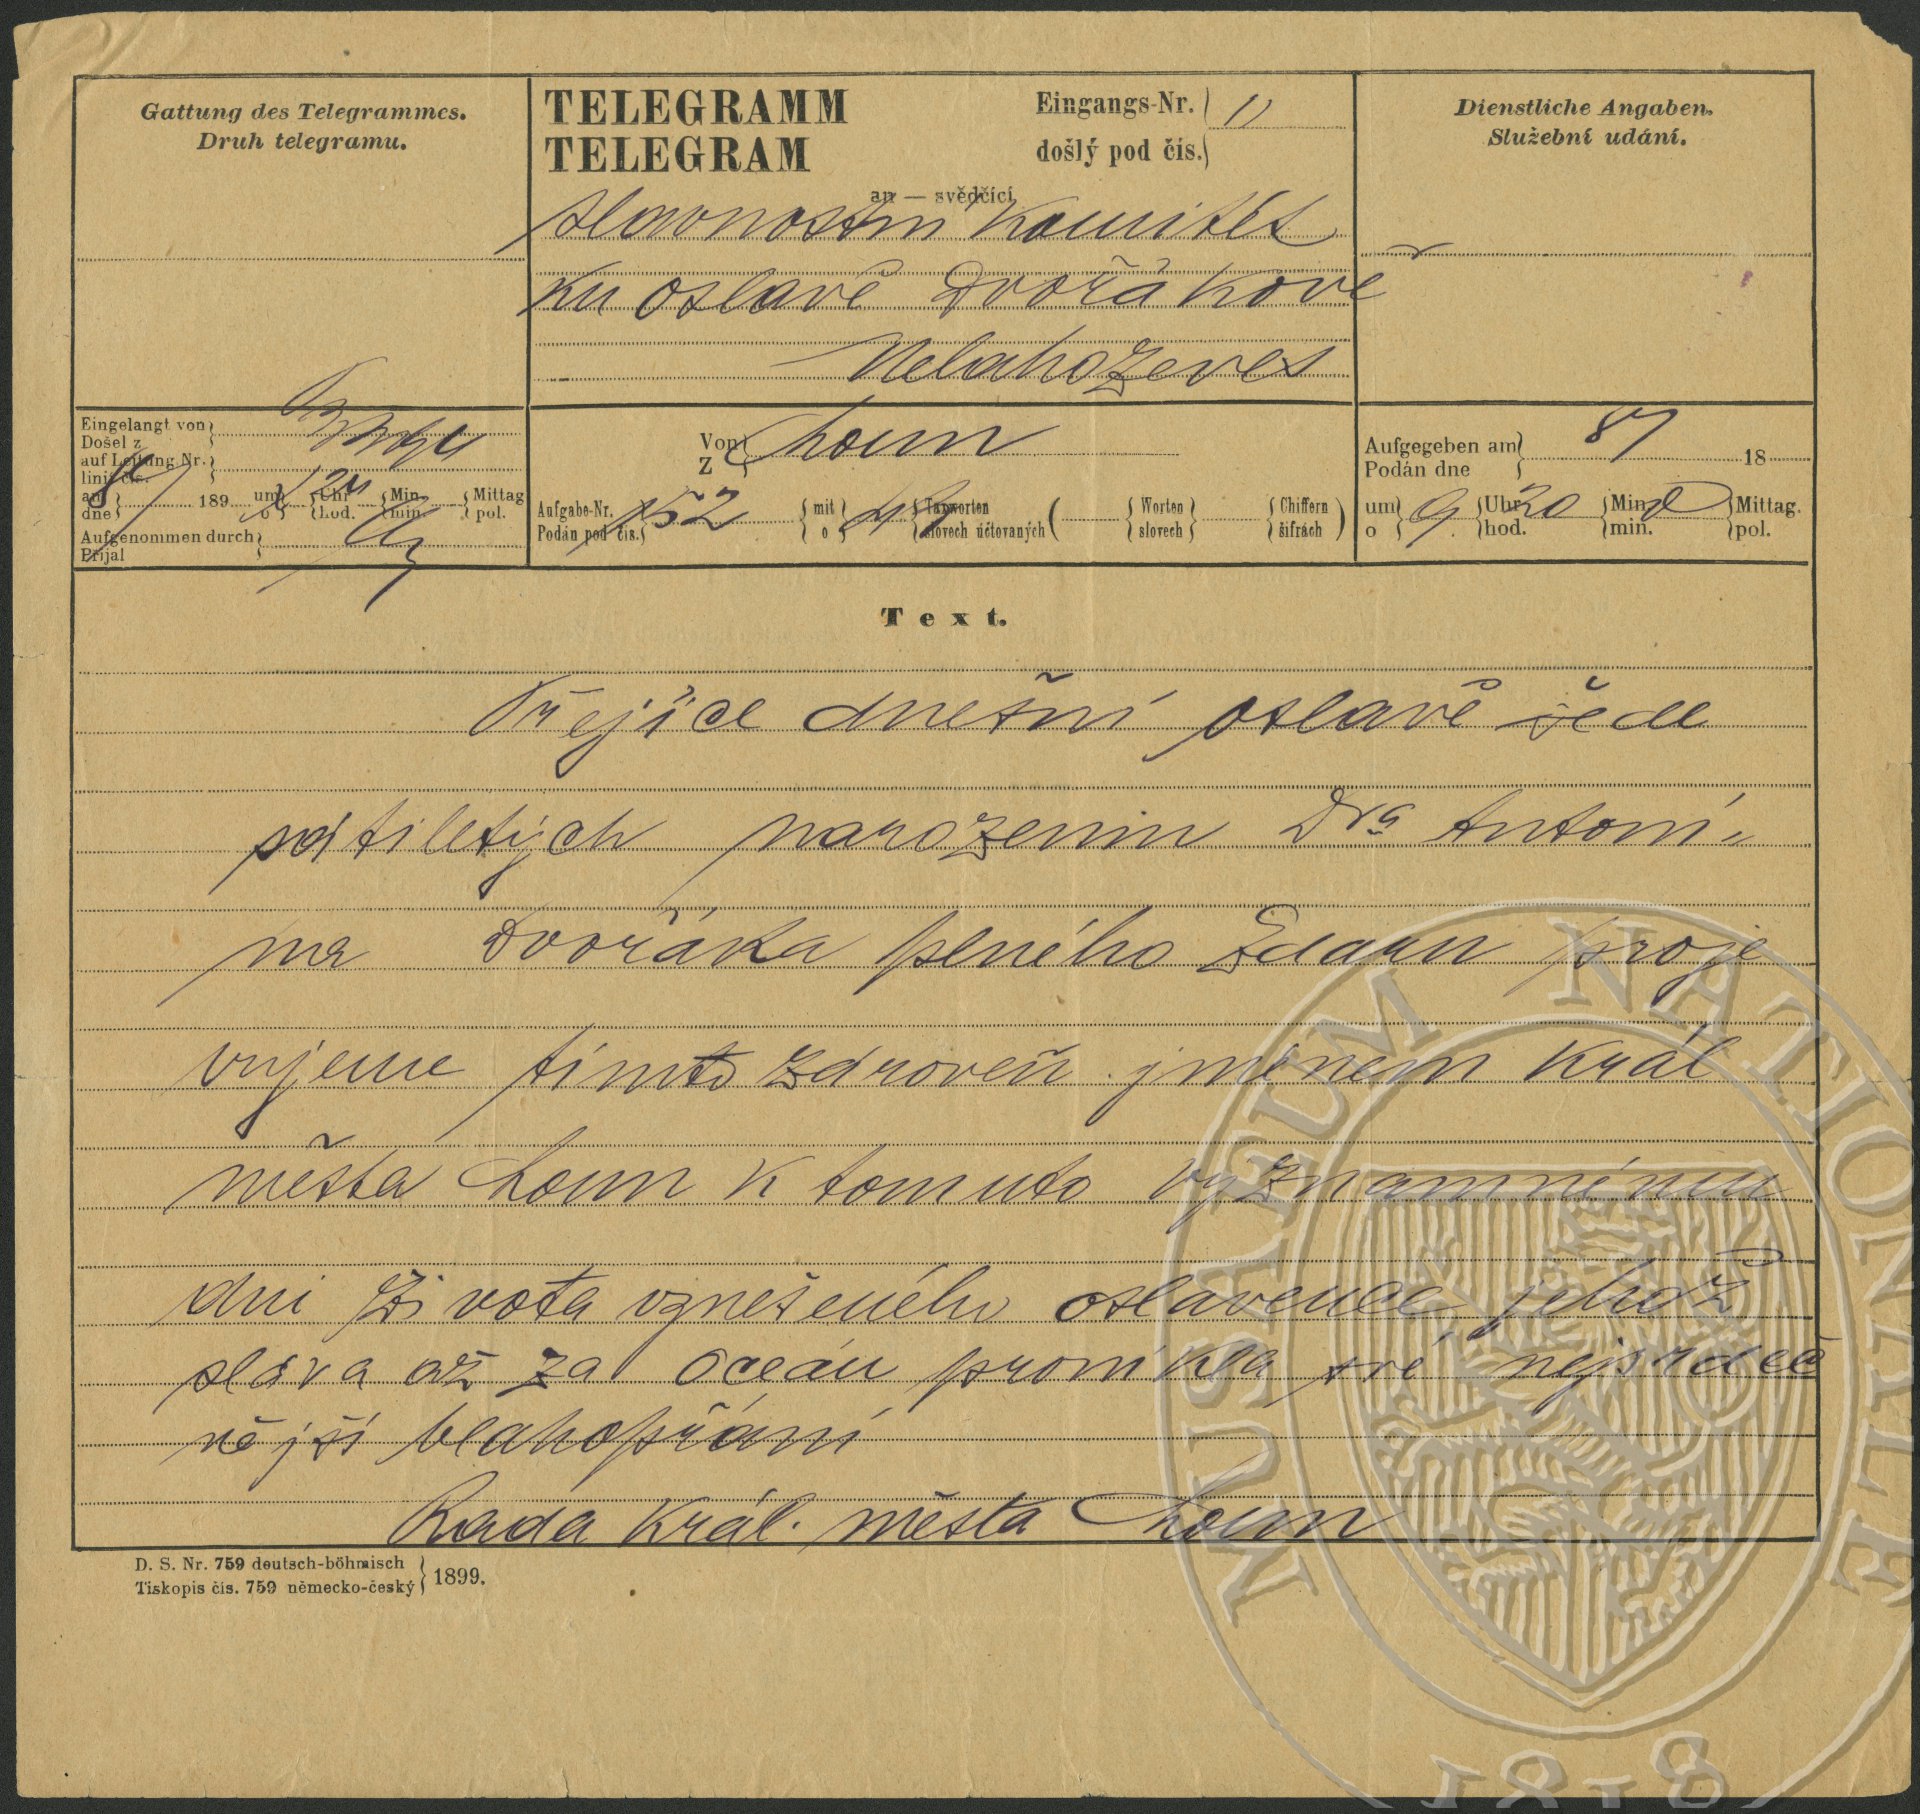 Gattung des Telegrammes.
Druh telegramu.
TELEGRAMM
TELEGRAM
Eingangs-Nr.
došlý pod čís.
11
an — svědčící
Dienstliche Angaben.
Služební udání.
slavnostní komitét
ku oslavě Dvořákově
Nelahozeves
Eingelangt von
Došel z
auf Leitung Nr.
linií čís.
am
dne
189
um
o
Uhr
hod.
Min.
min.
Mittag
pol.
Aufgenommen durch
Přijal
Von
Z
Loun
Aufgabe-Nr.
Podán pod čís.
152
mit
o
Taxworten
slovech účtovaných
Worten
slovech
Chiffern
šifrách
Aufgegeben am
Podán dne
8/9
18
um
o
9
Uhr
hod.
20
Min.
min.
Mittag.
pol.
Text.
Přejíce dnešní oslavě šede
sátiletých narozenin Dra Antoní-
na Dvořáka plného zdaru proje
vujeme tímto zároveň jménem král
města Loun k tomuto významnému
dni života vznešeného oslavence jehož
sláva až za oceán pronikla své nejsrdeč
nější blahopřání
Rada král. města Loun
D. S. Nr. 759 deutsch-böhmisch
Tiskopis čís. 759 německo-český
1899.
MUSAEUM NATIONALE
1818